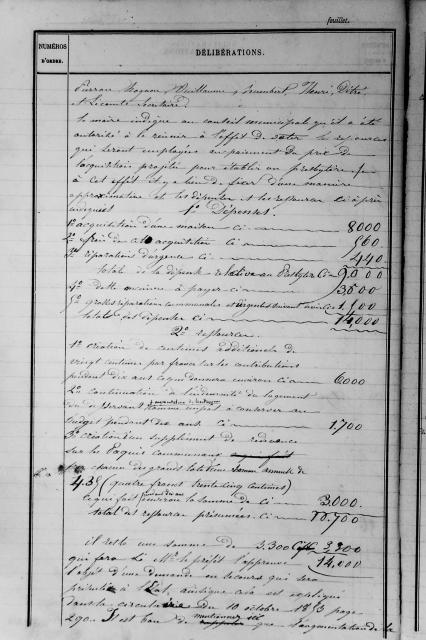 feuillet.
NUMÉROS D'ORDRE.
DÉLIBÉRATIONS.
Pierron Guillaume, Humbert, Henri,
et Lecomte Secrétaire.
Le maire indique au conseil municipal qu'il a été
autorisé à le réunir à l'effet de voter les ressources
qui seront employées au paiement du prix de
l'acquisition projetée pour établir un presbytère
à cet effet il y a lieu de fixer d'une manière
approximative et les dépenses et les ressources ci après
indiquées 1° Dépenses.
1° acquisition d'une maison ci 8000
2° frais de acquisition ci 560
3° réparations d'urgence ci 440
total de la dépense relative au Presbytère Ci 9000
4° Dette à payer ci 3500
5° grosses réparations communales et urgentes ci 1,500
total des dépenses ci 14,000
2° ressources.
1° création de centimes additionnels de
vingt centimes par franc sur les contributions
pendant dix ans ce qui donnera environ ci 6000
2° continuation de l'indemnité de logement
du desservant somme à conserver au
budget pendant dix ans ci 1,700
3° création d'un supplément de redevance
sur les Paquis communaux
par chacun des grands lots d'une somme annuelle de
4.35 (quatre francs trente cinq centimes)
ce qui fait pendant dix ans environ la somme de ci 3.000.
total des ressources présumées Ci 10,700
il reste une somme de 3.300 Ci 3,300
14,000
qui fera si Mr le préfet l'approuve
l'objet d'une demande en secours qui sera
présentée à l'état, ainsi que cela est expliqué
dans la circulaire du 10 octobre 1853 page
290. Il est bon de mentionner que l'augmentation de la